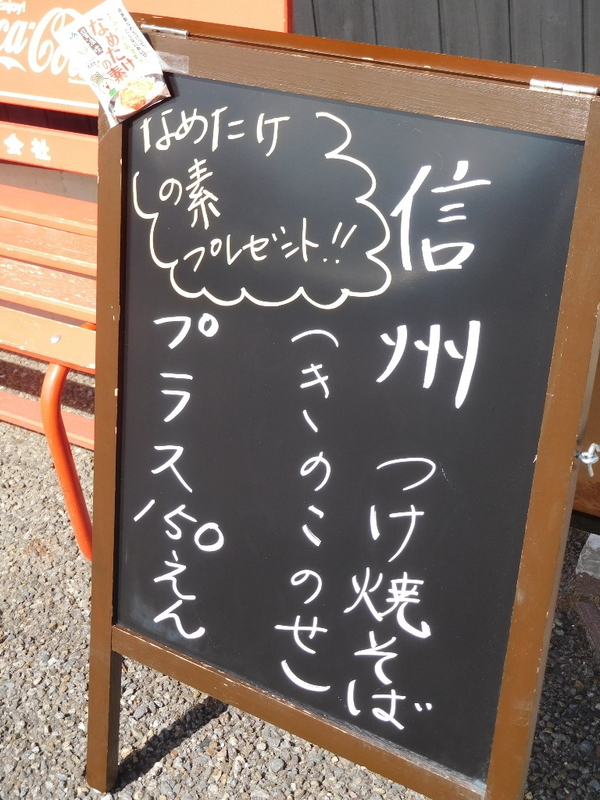 信州 つけ焼そば
(きのこのせ)
プラス150えん
なめたけ
の素
プレゼント!!
なめたけの素
会社
Enjoy!
Coca-Cola